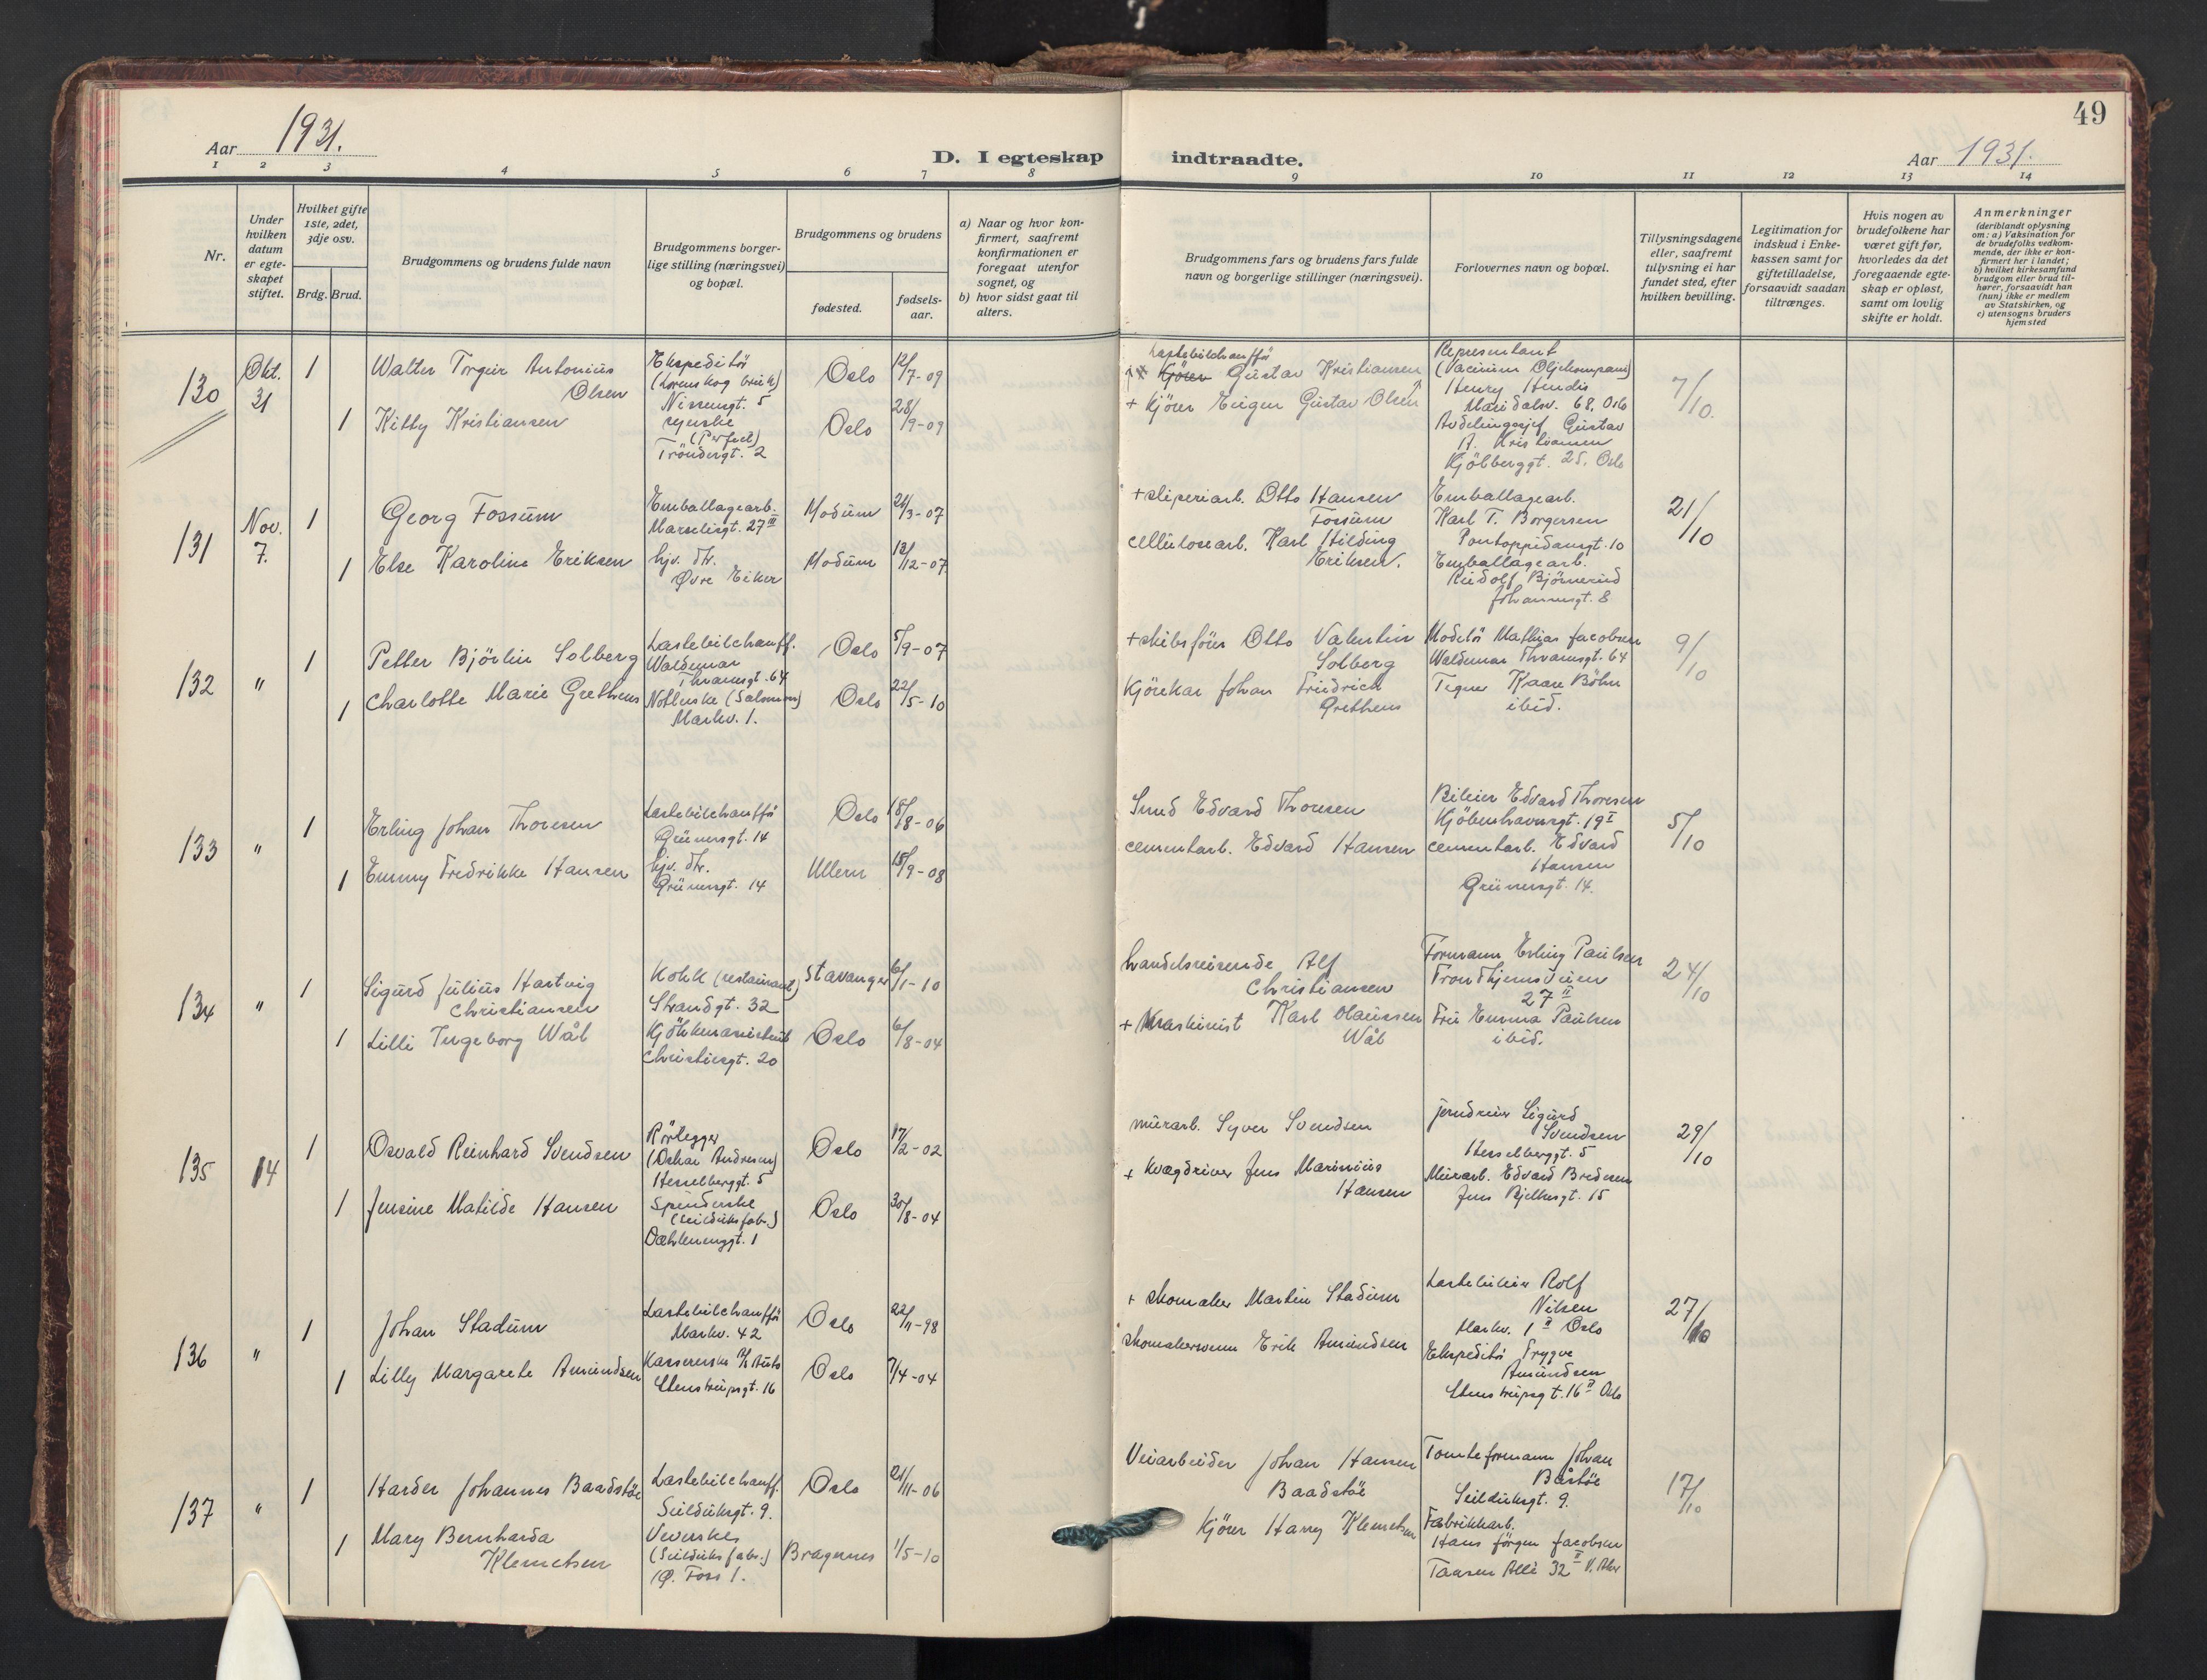 49
Aar 1931.
D. I egteskap indtraadte.
Aar 1931.
1 2 3 4 5 6 7 8 9 10 11 12 13 14
Nr.
Under hvilken datum er egte-skapet stiftet.
Hvilket gifte 1ste, 2det, 3dje osv.
Brdg. Brud.
Brudgommens og brudens fulde navn
Brudgommens borger-
lige stilling (næringsvei)
og bopæl.
Brudgommens og brudens
fødested.
fødsels-
aar.
a) Naar og hvor kon-
firmert, saafremt
konfirmationen er
foregaat utenfor
sognet, og
b) hvor sidst gaat til
alters.
Brudgommens fars og brudens fars fulde
navn og borgerlige stillinger (næringsvei).
Forlovernes navn og bopæl.
Tillysningsdagene
eller, saafremt
tillysning ei har
fundet sted, efter
hvilken bevilling.
Legitimation for
indskud i Enke-
kassen samt for
giftetilladelse,
forsaavidt saadan
tiltrænges.
Hvis nogen av
brudefolkene har
været gift før,
hvorledes da det
foregaaende egte-
skap er opløst,
samt om lovlig
skifte er holdt.
Anmerkninger
(deriblandt oplysning
om: a) Vaksination for
de brudefolks vedkom-
mende, der ikke er kon-
firmert her i landet;
b) hvilket kirkesamfund
brudgom eller brud til-
hører, forsaavidt han
(hun) ikke er medlem
av Statskirken, og
c) utensogns bruders
hjemsted
130
Okt.
31
1
Walter Torgeir Antonius
Olsen
Ekspeditør
(Lorenskog bruk)
Nissensgt. 5
Oslo
12/7-09
Lastebilchauffør
Kjörer Gustav Kristiansen
Representant
(Vacuum Oljekompani)
Henry
Maridalsv. 68, Oslo
7/10.
1
Kitty Kristiansen
syerske
(Perfect)
Tröndergt. 2
Oslo
28/9-09
+ Kjörer Eugen Gustav Olsen
Avdelingssjef Gustav
A. Kristiansen
Kjölberggt. 25, Oslo
131
Nov.
7.
1
Georg Fossum
Emballagearb.
Marselisgt. 27 III
Modum
24/3-07
+ sliperiarb. Otto Hansen
Fossum
Emballagearb.
Karl T. Borgersen
Pontoppidansgt. 10
21/10
1
Else Karoline Eriksen
hjv. dtr.
Øvre Eiker
Modum
12/12-07
cellulosearb. Karl Hilding
Eriksen.
Emballagearb.
Rudolf Björnerud
Johannesgt. 8
132
"
1
Petter Björlin Solberg
Lastebilchauff.
Waldemar
Thranesgt. 64
Oslo
5/9-07
+ skibsförer Otto Valentin
Solberg
Modelö Mathias Jacobsen
Waldemar Thranesgt. 64
9/10
1
Charlotte Marie Grethens
Notterske (Salomon)
Markv. 1.
Oslo
22/5-10
Kjörekar Johan Friedrich
Grethens
Tegner Kaare Böhn
ibid.
133
"
1
Erling Johan Thoresen
Lastebilchauffö
Grünersgt. 14
Oslo
18/8-06
Smed Edvard Thoresen
Bileier Edvard Thoresen
Kjöbenhavnsgt. 19 I
5/10
1
Emmy Fredrikke Hansen
hjv. dtr.
Grünersgt. 14
Ullern
15/9-08
cementarb. Edvard Hansen
cementarb. Edvard
Hansen
Grünersgt. 14.
134
"
1
Sigurd Julius Hartvig
Christiansen
Kokk (restaurant)
Strandgt. 32
Stavanger
6/1-10
handelsreisende Alf
Christiansen
Formann Erling Paulsen
Trondhjemsveien
27 II
24/10
1
Lilli Ingeborg Wål
Kjökkenassistent
Christiesgt. 20
Oslo
6/8-04
+ Maskinist Karl Olaussen
Wål
Fru Emma Paulsen
ibid.
135
14
1
Osvald Reinhard Svendsen
Rörlegger
(Oskar Andresen)
Hesselberggt. 5
Oslo
17/2-02
murarb. Syver Svendsen
jerndreier Sigurd
Svendsen
Hesselberggt. 5
29/10
1
Jensine Matilde Hansen
Spinderske
(Seilduksfabr.)
Dæhlenenggt. 1
Oslo
30/8-04
+ Kvægdriver Jens Marinius
Hansen
Murarb. Edvard Bredesen
Jens Bjelkesgt. 15
136
"
1
Johan Stadum
Lastebilchauffö
Markv. 42
Oslo
22/11-98
+ skomaker Martin Stadum
Lastebileier Rolf
Nilsen
Markv. 1 II Oslo
27/10
1
Lilly Margarete Amundsen
Kassererske A/S Auto
Stenstrupsgt. 16
Oslo
7/4-04
skomakersvenn Erik Amundsen
Ekspeditö Trygve
Amundsen
Stenstrupsgt. 16 II Oslo
137
"
1
Harder Johannes Baadstöe
Lastebilchauff.
Seilduksgt. 9.
Oslo
21/11-06
Veiarbeider Johan Hansen
Baadstöe
Tomteformann Johan
Båstöe
Seilduksgt. 9.
17/10
1
Mary Bernharda
Klemetsen
Veverske
(Seilduksfabr.)
Ø. Foss 1.
Bragernes
1/5-10
Kjörer Harry Klemetsen
Fabrikkarb.
Hans Jörgen Jacobsen
Taasen Allé 32 II V. Aker